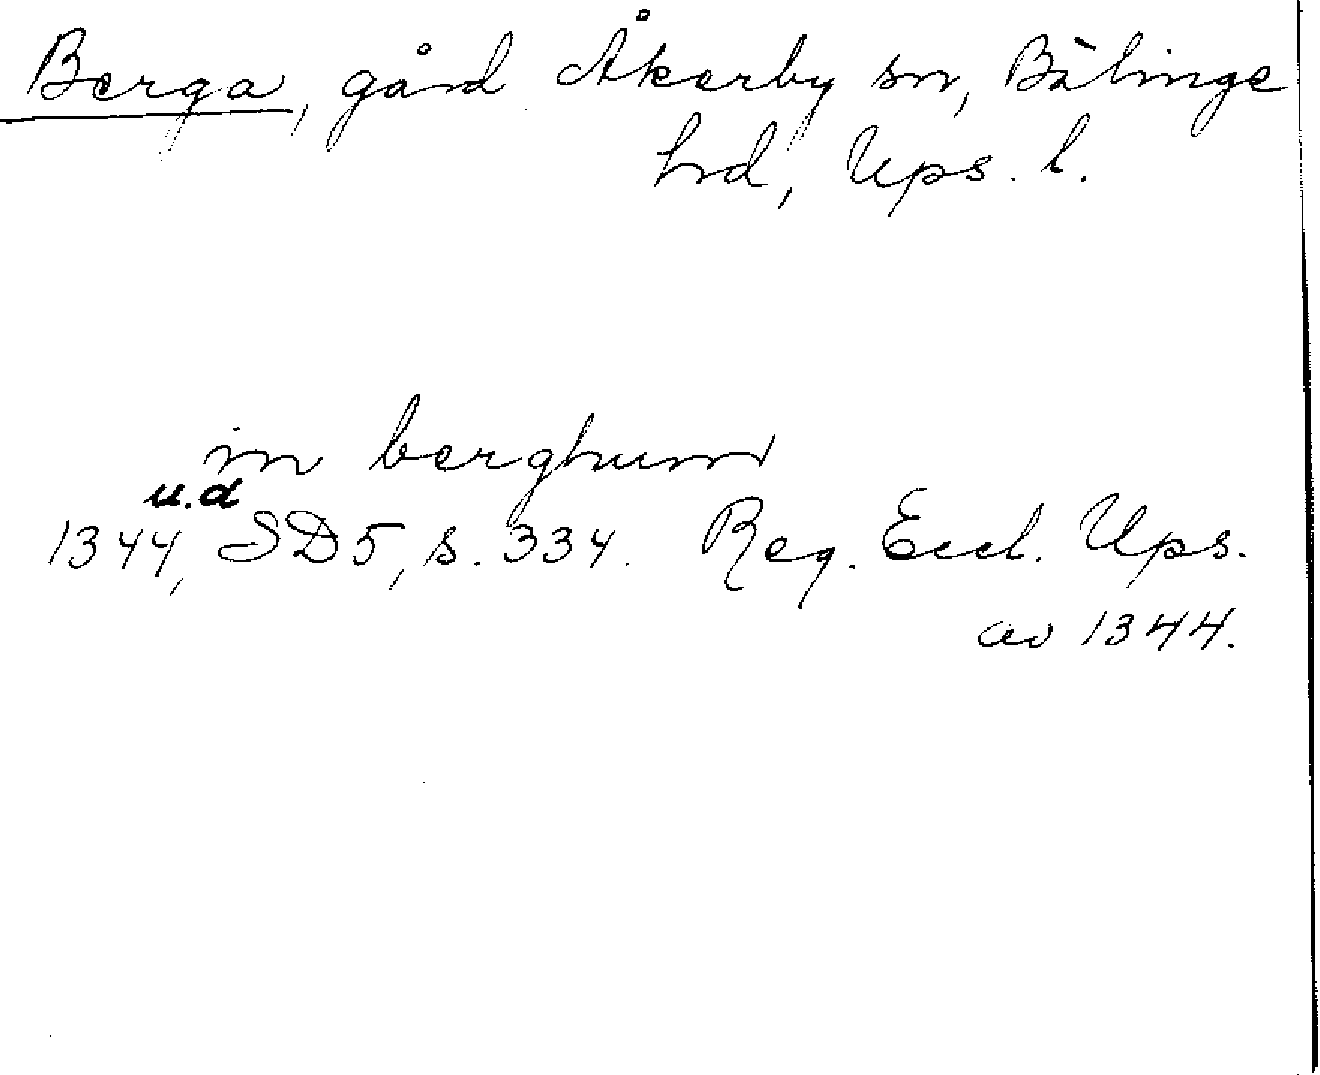 Berga, gård Åkerby sn, Bälinge
hd, Ups. l.
in berghum
u.d
1344, SD5, s. 334. Reg. Eccl. Ups.
av 1344.